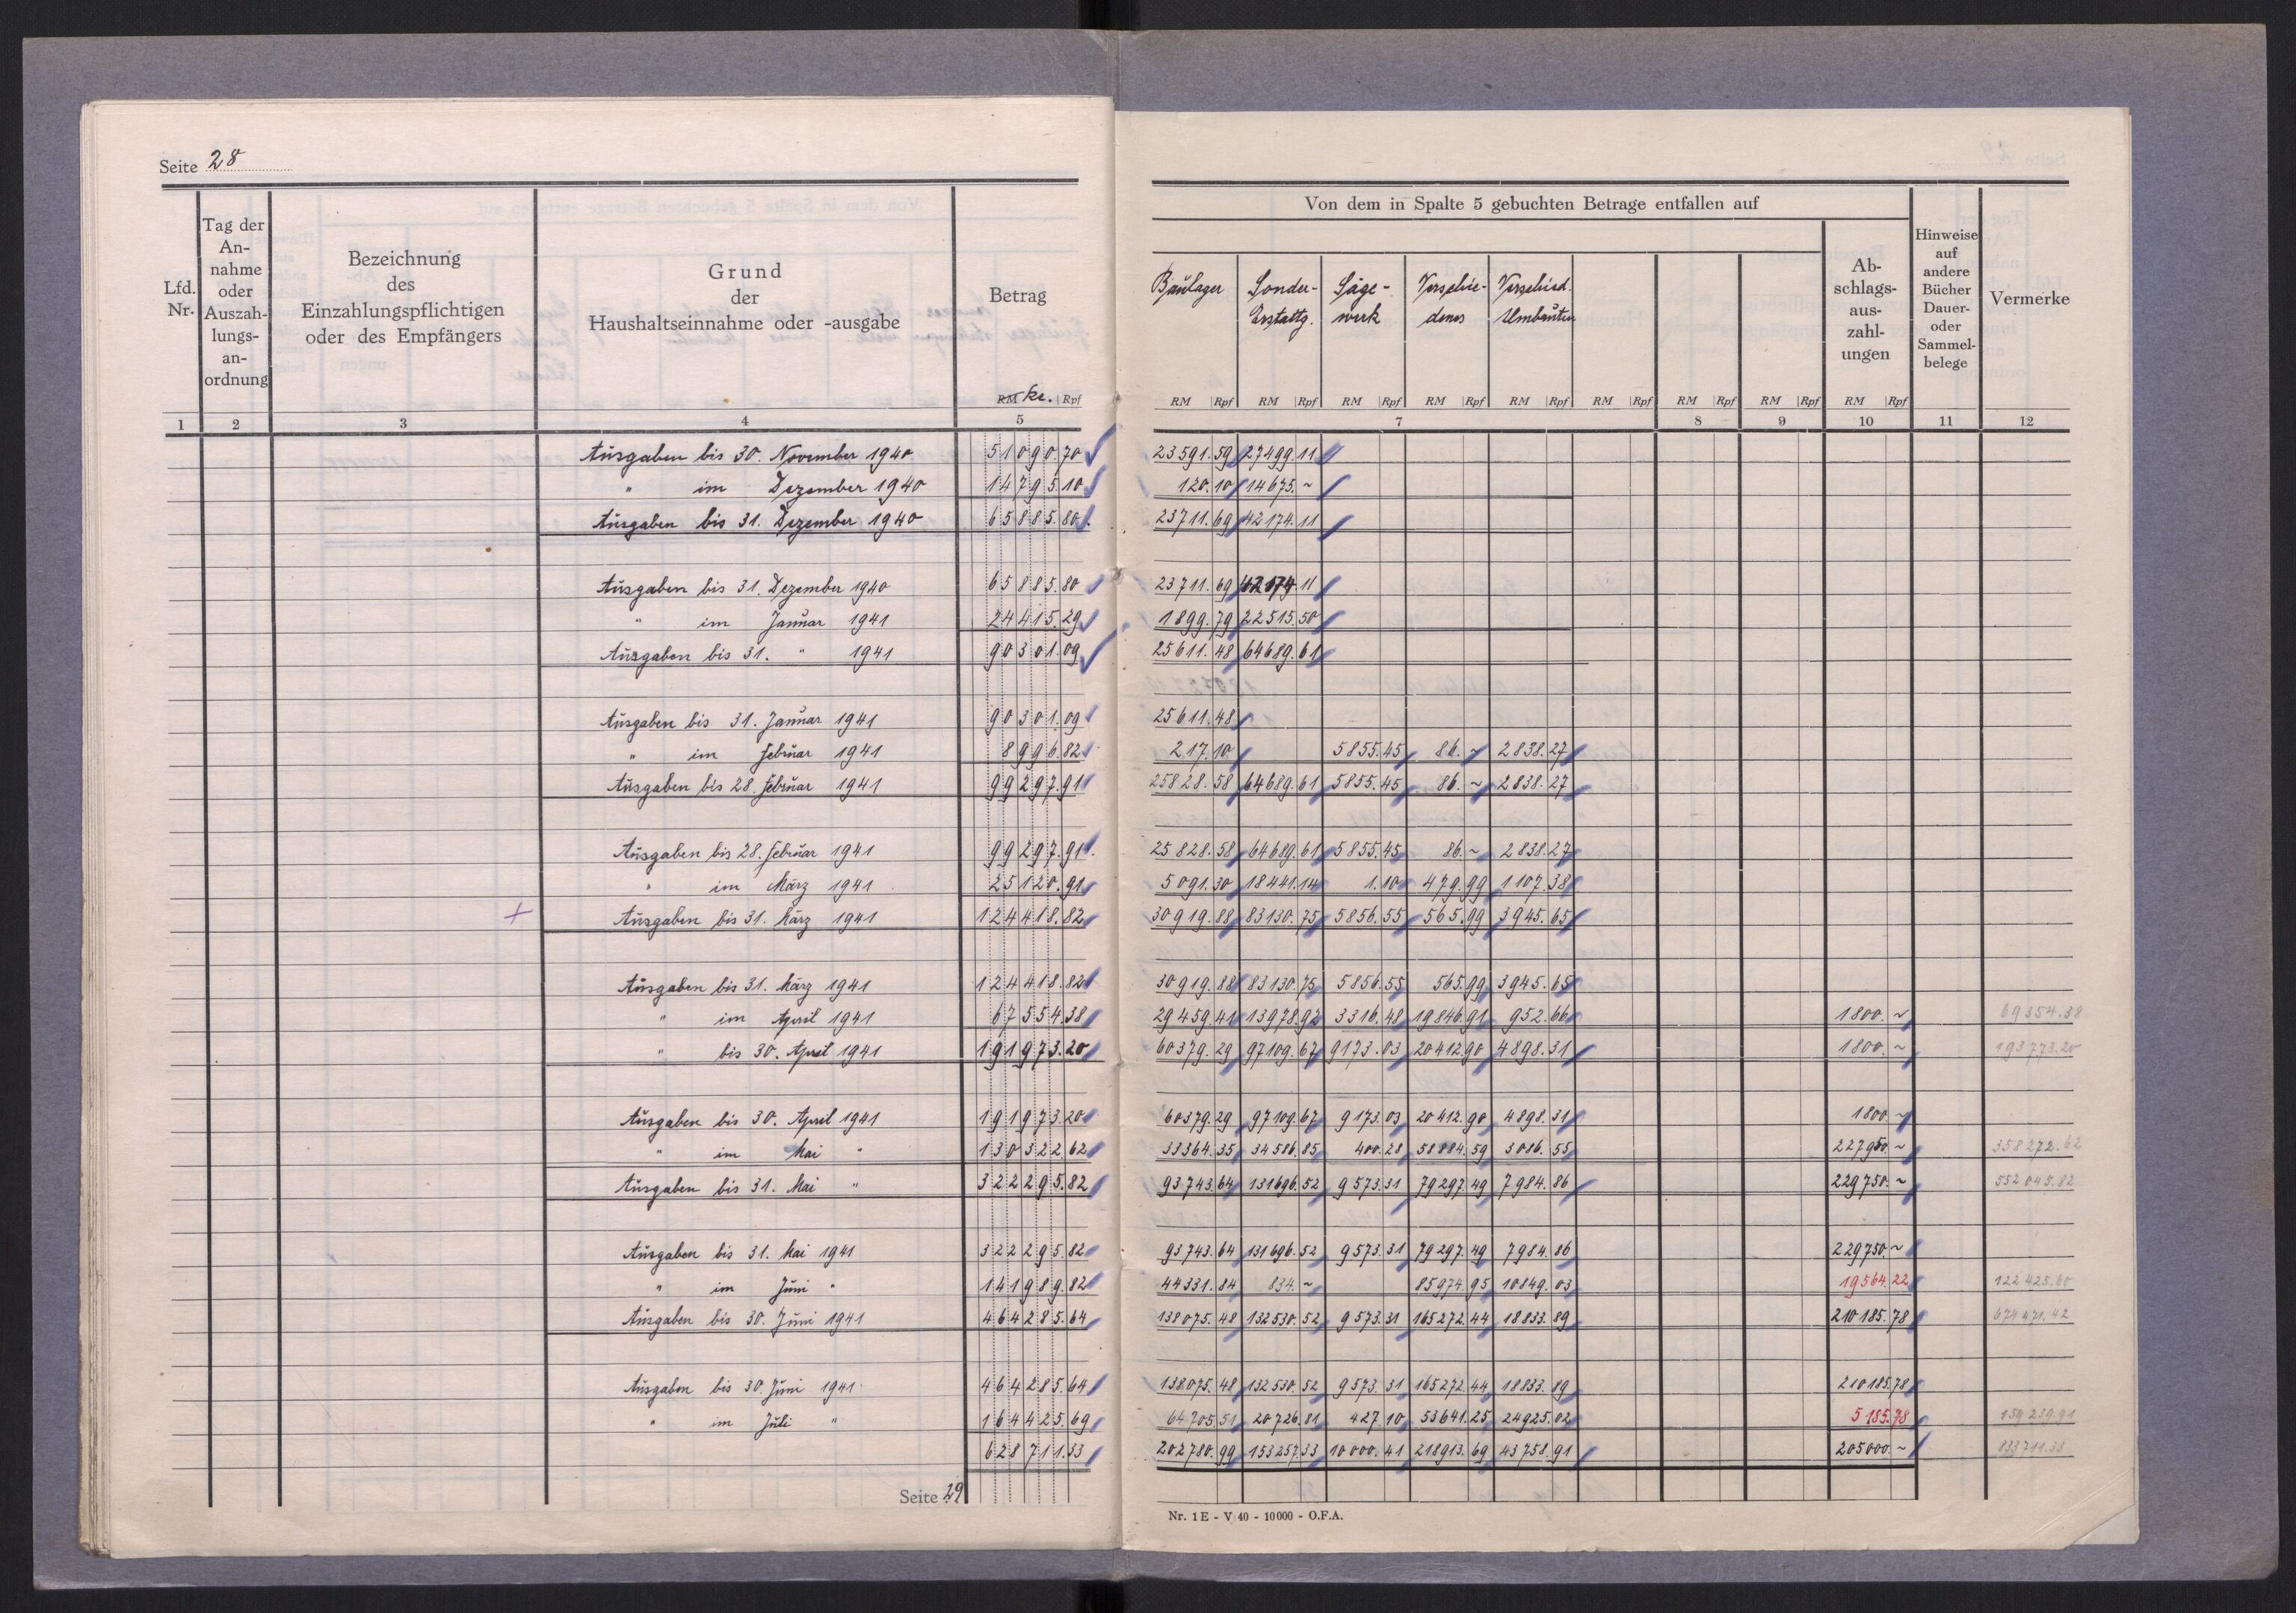 Seite 28
Lfd. Nr.
Tag der An- nahme oder Auszah- lungs- an- ordnung
Bezeichnung des Einzahlungspflichtigen oder des Empfängers
Grund der Haushaltseinnahme oder -ausgabe
Betrag
RM Kr. Rpf
Von dem in Spalte 5 gebuchten Betrage entfallen auf
Baulager Sonder- Erstattg. Säge- werk Verschie- denes Verschied. Umbauten
Ab- schlags- aus- zahl- ungen
Hinweise auf andere Bücher Dauer- oder Sammel- belege
Vermerke
RM Rpf RM Rpf RM Rpf RM Rpf RM Rpf RM Rpf RM Rpf RM Rpf RM Rpf
1 2 3 4 5 7 8 9 10 11 12
Ausgaben bis 30. November 1940 51090.70 23591.59 27499.11
" im Dezember 1940 14795.10 120.10 14675.~
Ausgaben bis 31. Dezember 1940 65885.80 23711.69 42174.11
Ausgaben bis 31. Dezember 1940 65885.80 23711.69 42174.11
" im Januar 1941 24415.29 1899.79 22515.50
Ausgaben bis 31. " 1941 90301.09 25611.48 64689.61
Ausgaben bis 31. Januar 1941 90301.09 25611.48
" im Februar 1941 8996.82 217.10 5855.45 86.~ 2838.27
Ausgaben bis 28. Februar 1941 99297.91 25828.58 64689.61 5855.45 86.~ 2838.27
Ausgaben bis 28. Februar 1941 99297.91 25828.58 64689.61 5855.45 86.~ 2838.27
" im März 1941 25120.91 5091.30 18441.14 1.10 479.99 1107.38
+ Ausgaben bis 31. März 1941 124418.82 30919.88 83130.75 5856.55 565.99 3945.65
Ausgaben bis 31. März 1941 124418.82 30919.88 83130.75 5856.55 565.99 3945.65
" im April 1941 67554.38 29459.41 13978.92 3316.48 19846.91 952.66 1800.~ 69354.38
" bis 30. April 1941 191973.20 60379.29 97109.67 9173.03 20412.90 4898.31 1800.~ 193773.20
Ausgaben bis 30. April 1941 191973.20 60379.29 97109.67 9173.03 20412.90 4898.31 1800.~
" im Mai " 130322.62 33364.35 34586.85 400.28 58884.59 3086.55 227950.~ 358272.62
Ausgaben bis 31. Mai " 322295.82 93743.64 131696.52 9573.31 79297.49 7984.86 229750.~ 552045.82
Ausgaben bis 31. Mai 1941 322295.82 93743.64 131696.52 9573.31 79297.49 7984.86 229750.~
" im Juni " 141989.82 44331.84 834.~ 85974.95 10849.03 19564.22 122425.60
Ausgaben bis 30. Juni 1941 464285.64 138075.48 132530.52 9573.31 165272.44 18833.89 210185.78 674471.42
Ausgaben bis 30. Juni 1941 464285.64 138075.48 132530.52 9573.31 165272.44 18833.89 210185.78
" im Juli " 164425.69 64705.51 20726.81 427.10 53641.25 24925.02 5185.78 159239.91
628711.33 202780.99 153257.33 10000.41 218913.69 43758.91 205000.~ 833711.33
Seite 29
Nr. 1 E - V 40 - 10000 - O.F.A.